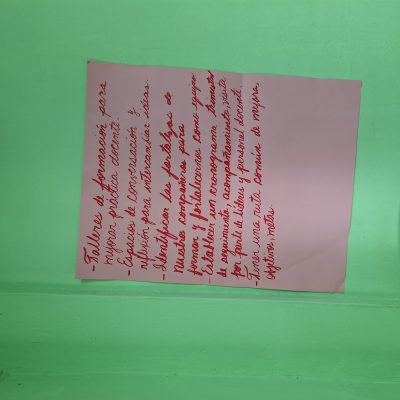 - Talleres de formación para
mejorar práctica docente.
- Espacios de conversación y
reflexión para intercambiar ideas.
- Identifican las fortalezas de
nuestros compañeros para
formar y fortalecernos como equipo
- Establecer un cronograma
de seguimiento, acompañamiento, visita
por parte de líderes y personal docente.
- Tener una ruta común de mejora,
objetivos, metas.